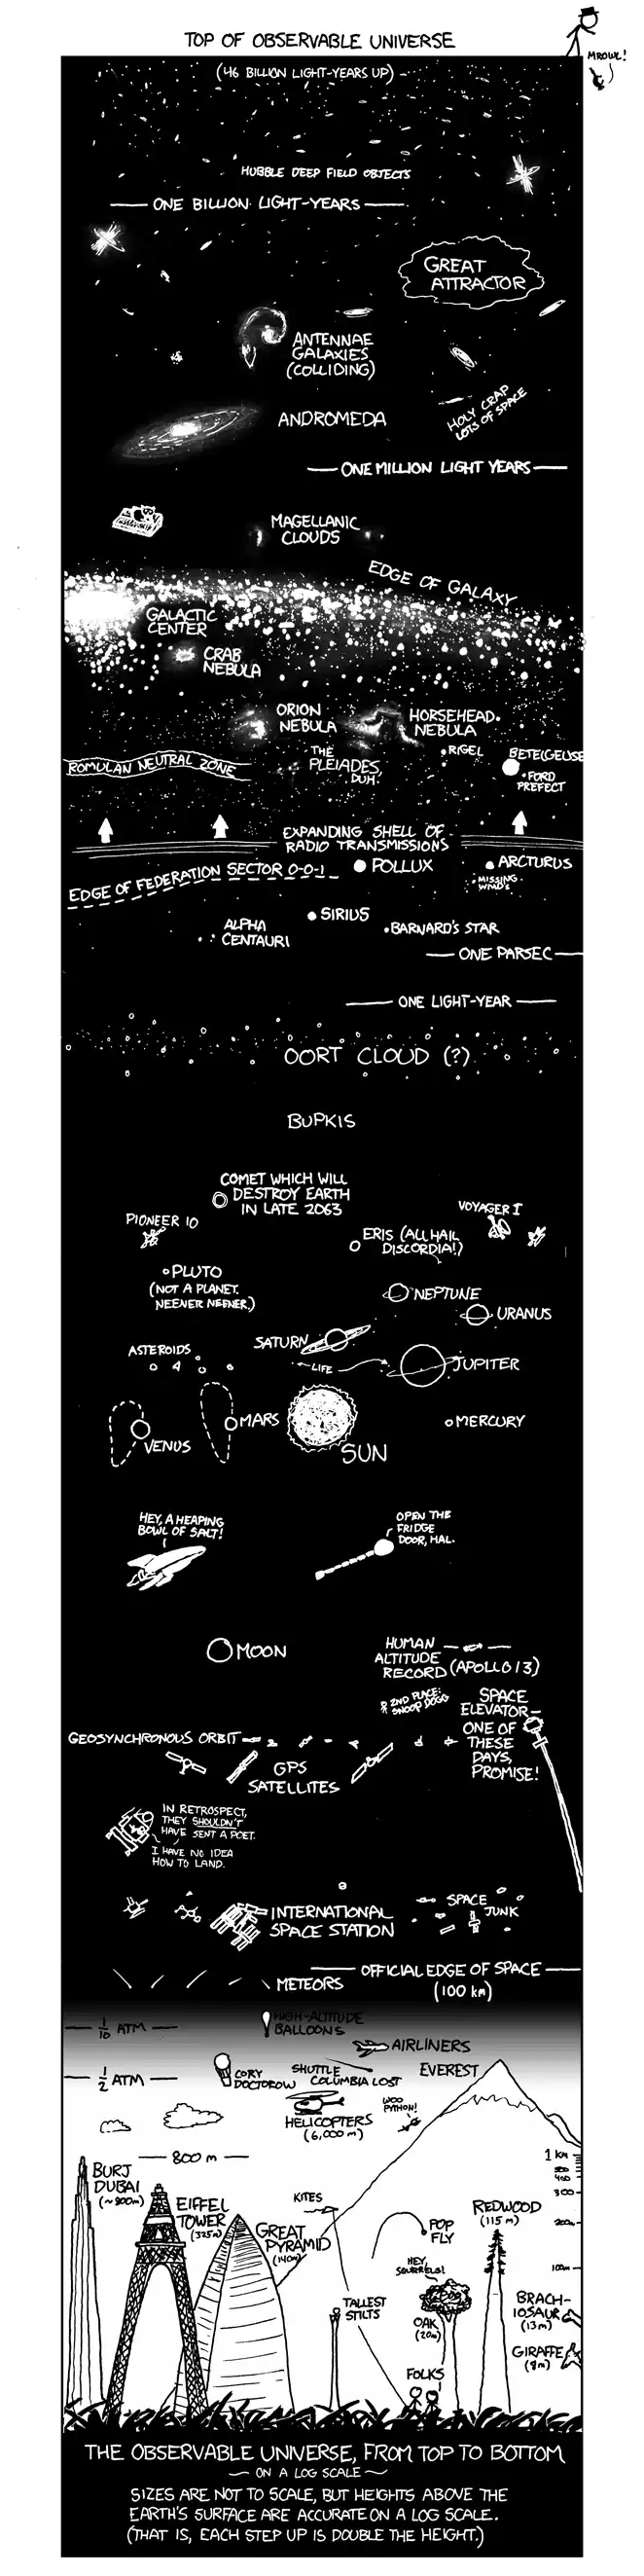 TOP OF OBSERVABLE UNIVERSE
MROWL!
(46 BILLION LIGHT-YEARS UP)
HUBBLE DEEP FIELD OBJECTS
ONE BILLION LIGHT-YEARS
GREAT
ATTRACTOR
ANTENNAE
GALAXIES
(COLLIDING)
HOLY CRAP
LOTS OF SPACE
ANDROMEDA
ONE MILLION LIGHT YEARS
MAGELLANIC
CLOUDS
EDGE OF GALAXY
GALACTIC
CENTER
CRAB
NEBULA
ORION
NEBULA
HORSEHEAD
NEBULA
RIGEL
BETELGEUSE
THE
PLEIADES
DUH.
FORD
PREFECT
ROMULAN NEUTRAL ZONE
EXPANDING SHELL OF
RADIO TRANSMISSIONS
EDGE OF FEDERATION SECTOR 0-0-1
POLLUX
ARCTURUS
MISSING
WMD'S
SIRIUS
ALPHA
CENTAURI
BARNARD'S STAR
ONE PARSEC
ONE LIGHT-YEAR
OORT CLOUD (?)
BUPKIS
COMET WHICH WILL
DESTROY EARTH
IN LATE 2063
PIONEER 10
VOYAGER I
ERIS (ALL HAIL
DISCORDIA!)
PLUTO
(NOT A PLANET.
NEENER NEENER.)
NEPTUNE
URANUS
SATURN
ASTEROIDS
LIFE
JUPITER
MARS
MERCURY
VENUS
SUN
HEY, A HEAPING
BOWL OF SALT!
OPEN THE
FRIDGE
DOOR, HAL.
MOON
HUMAN
ALTITUDE
RECORD (APOLLO 13)
2ND PLACE:
SNOOP DOGG
SPACE
ELEVATOR—
ONE OF
THESE
DAYS,
PROMISE!
GEOSYNCHRONOUS ORBIT
GPS
SATELLITES
IN RETROSPECT,
THEY SHOULDN'T
HAVE SENT A POET.
I HAVE NO IDEA
HOW TO LAND.
INTERNATIONAL
SPACE STATION
SPACE
JUNK
OFFICIAL EDGE OF SPACE
(100 km)
METEORS
1/10 ATM
HIGH-ALTITUDE
BALLOONS
AIRLINERS
1/2 ATM
CORY
DOCTOROW
SHUTTLE
COLUMBIA LOST
EVEREST
HELICOPTERS
(6,000 m)
WOO
PYTHON!
800 m
1 KM
500
400
300
200m
100m
BURJ
DUBAI
(~800m)
EIFFEL
TOWER
(325m)
GREAT
PYRAMID
(140m)
KITES
POP
FLY
REDWOOD
(115 m)
HEY,
SQUIRRELS!
TALLEST
STILTS
OAK
(20m)
BRACH-
IOSAUR
(13m)
GIRAFFE
(8m)
FOLKS
THE OBSERVABLE UNIVERSE, FROM TOP TO BOTTOM
— ON A LOG SCALE —
SIZES ARE NOT TO SCALE, BUT HEIGHTS ABOVE THE
EARTH'S SURFACE ARE ACCURATE ON A LOG SCALE.
(THAT IS, EACH STEP UP IS DOUBLE THE HEIGHT.)